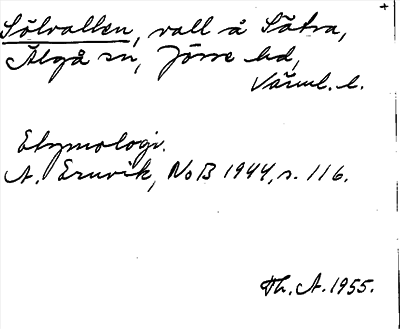 Sölvallen, vall å Sätra,
Älgå sn, Jösse hd,
Värml. l.
Etymologi.
A. Ernvik, NoB 1944, s. 116.
Th. A. 1955.